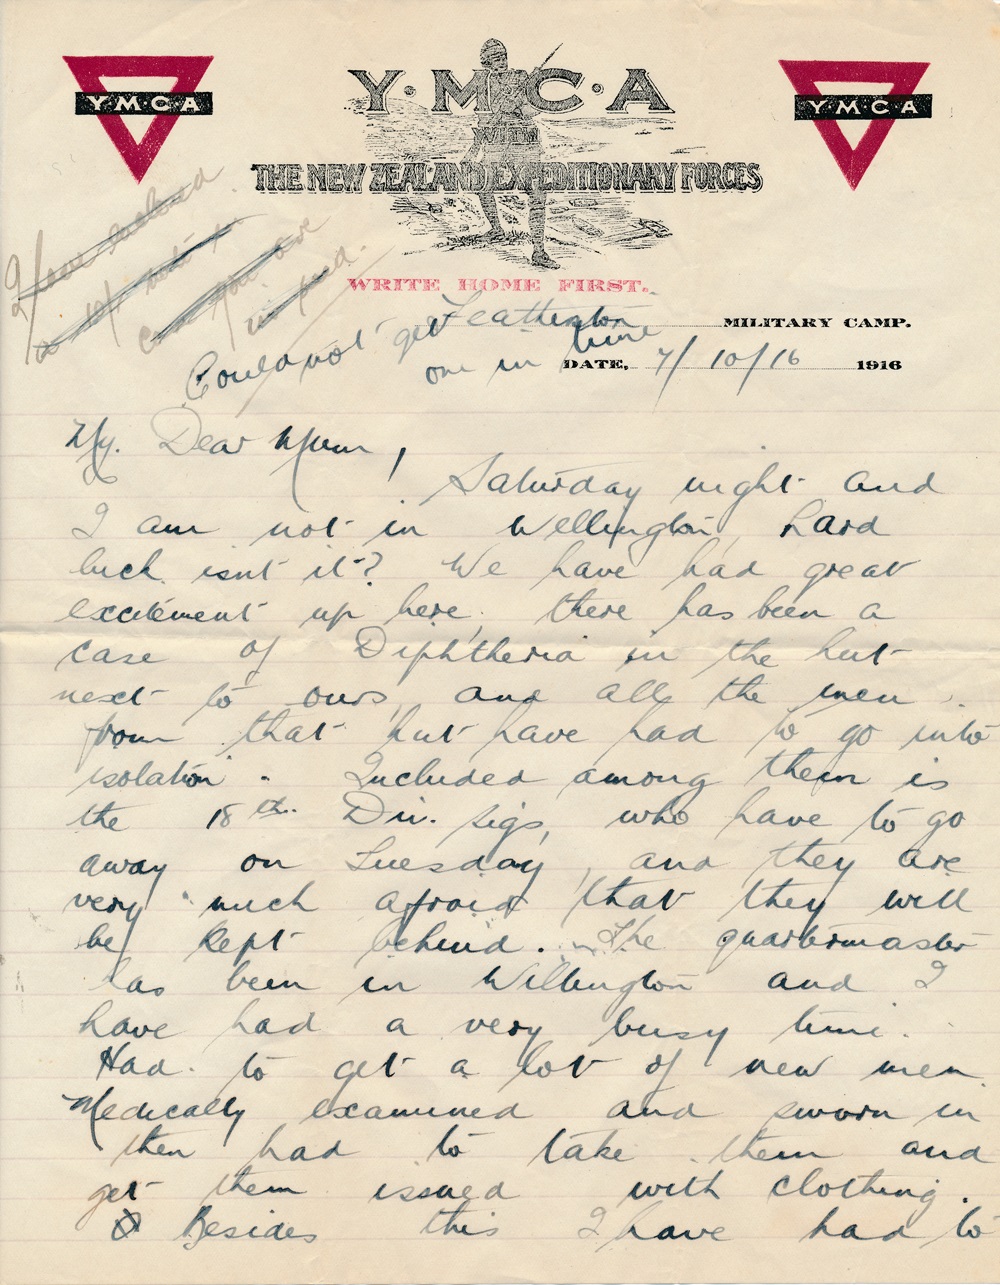 Y.M.C.A
Y·M·C·A
Y·M·C·A
WITH
THE NEW ZEALAND EXPEDITIONARY FORCES
WRITE HOME FIRST.
I have enclosed
a 10/- note
case you are
Could not get
one in time
Featherston MILITARY CAMP.
DATE, 7/10/16 1916
My. Dear Mum,
Saturday night and
I am not in Wellington, hard
luck isnt it? We have had great
excitement up here, there has been a
case of Diphtheria in the hut
next to ours, and all the men
from that hut have had to go into
isolation. Included among them is
the 18th. Div. sigs, who have to go
away on Tuesday, and they are
very much afraid that they will
be kept behind. The quartermaster
has been in Wellington and I
have had a very busy time.
Had to get a lot of new men
Medically examined and sworn in
then had to take them and
get them issued with clothing.
Besides this I have had to